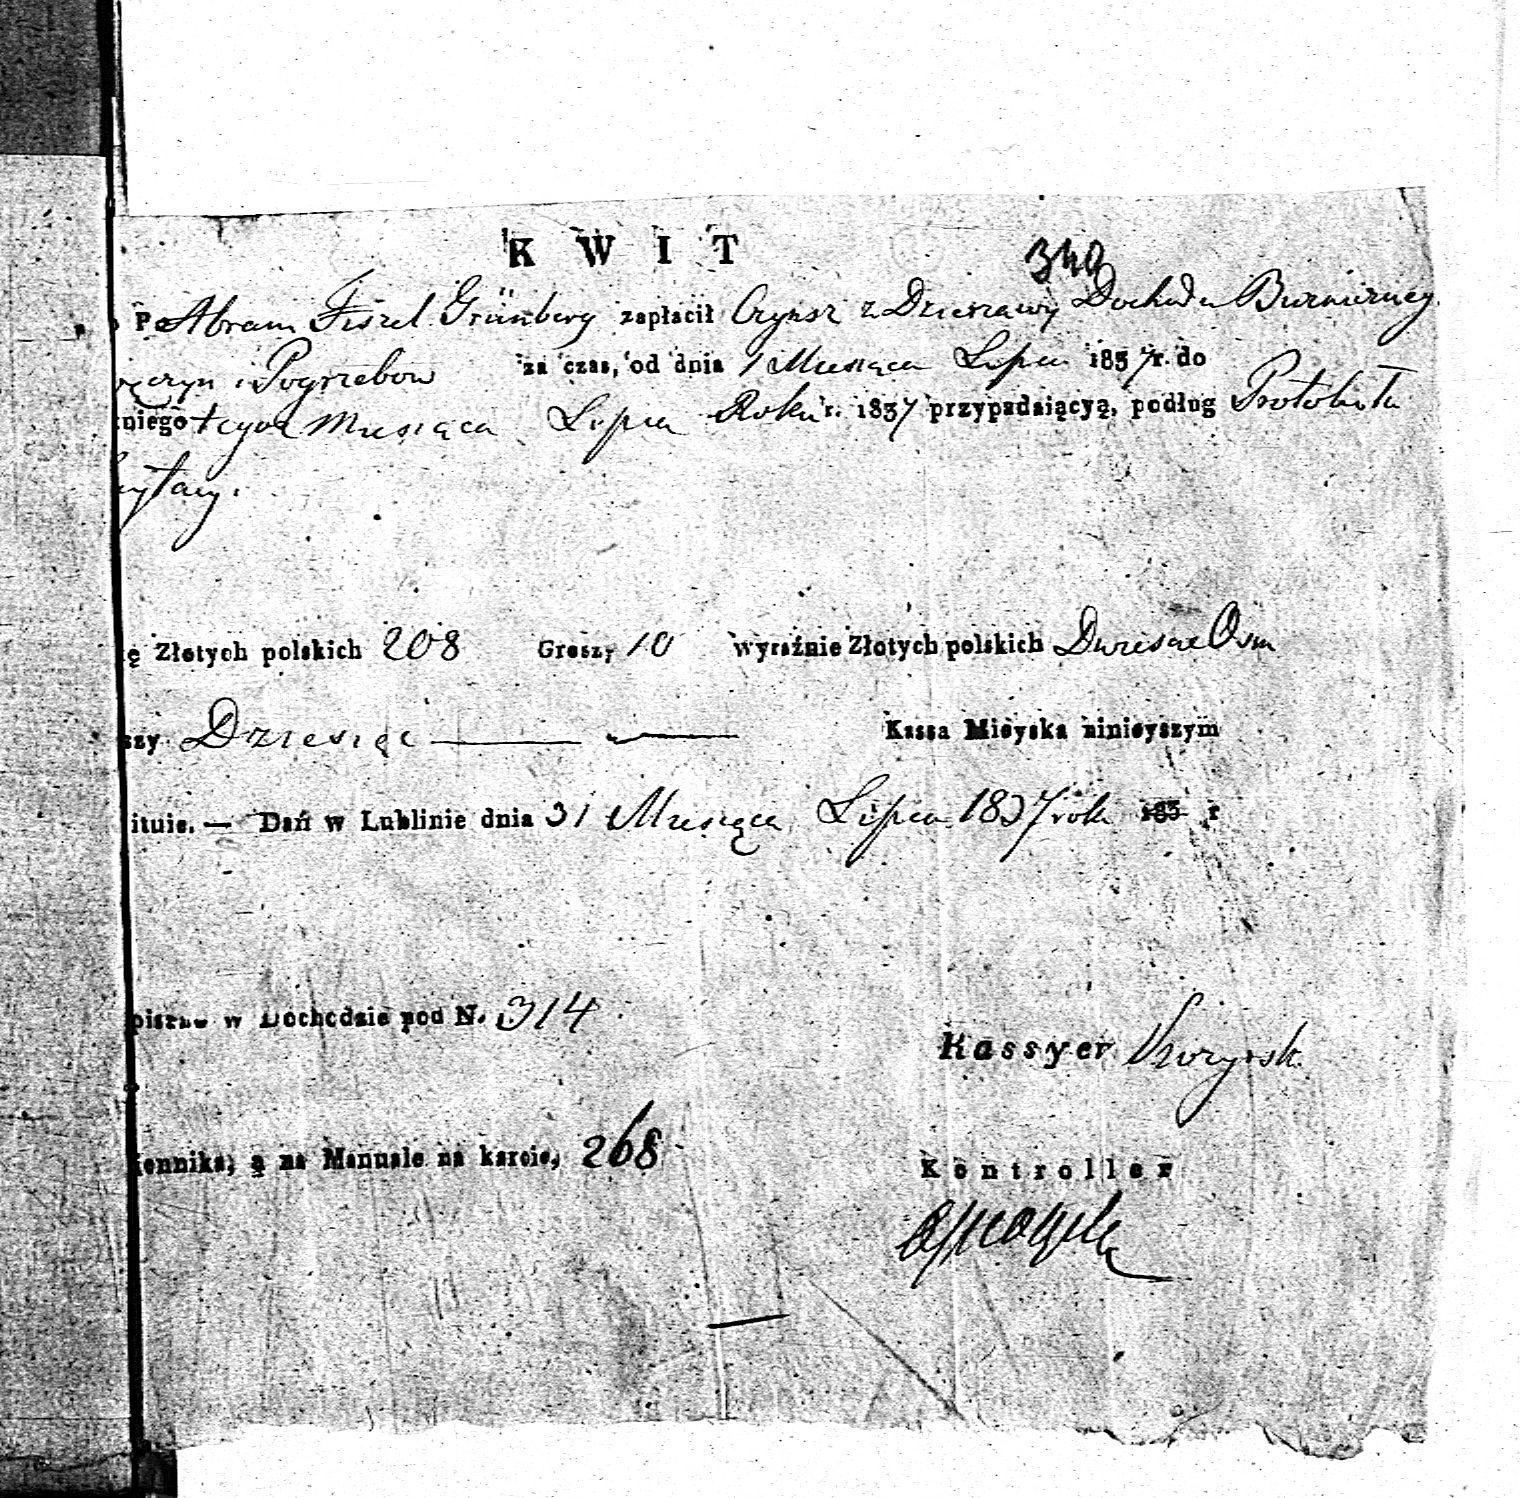 K W I T 340
Abram Fiszel Grünberg zapłacił Czynsz z Dzierzawy Dochodu
i Pogrzebow za czas, od dnia 1 Miesiąca Lipca 1837 r. do
niego tegoż Miesiąca Lipca Roku r. 1837 przypadaiącyą, podług Protokułu
ę Złotych polskich 208 Groszy 10 wyraźnie Złotych polskich Dwieście Osm
szy Dziesięc Kassa Mieyska ninieyszym
ituie. — Dań w Lublinie dnia 31 Miesiąca Lipca 1837 roku 183 r
w Dochodzie pod N. 314
Kassyer
iennika; a na Manuale na karcie, 268
Kontroller